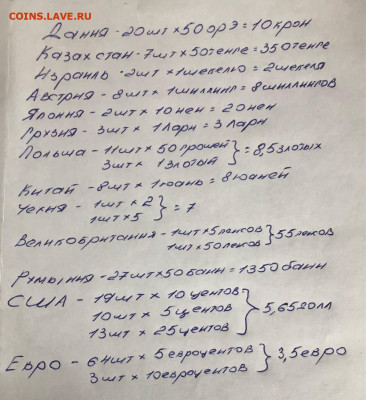 COINS.LAVE.RU
Дания - 20шт х 50 орэ = 10 крон
Казахстан - 7шт х 50тенге = 350тенге
Израиль - 2шт х 1шекелю = 2шекеля
Австрия - 8шт х 1шиллинг = 8шиллингов
Япония - 2шт х 10иен = 20иен
Грузия - 3шт х 1лари = 3лари
Польша - 11шт х 50грошей
3шт х 1злотый } = 8,5злотых
Китай - 8шт х 1юань = 8юаней
Чехия - 1шт х 2
1шт х 5 } = 7
Великобритания - 1шт х 5пенсов
1шт х 50пенсов } 55пенсов
Румыния - 27шт х 50бани = 1350бани
США - 19шт х 10центов
10шт х 5центов
13шт х 25центов } 5,65долл
Евро - 64шт х 5евроцентов
3шт х 10евроцентов } 3,5евро